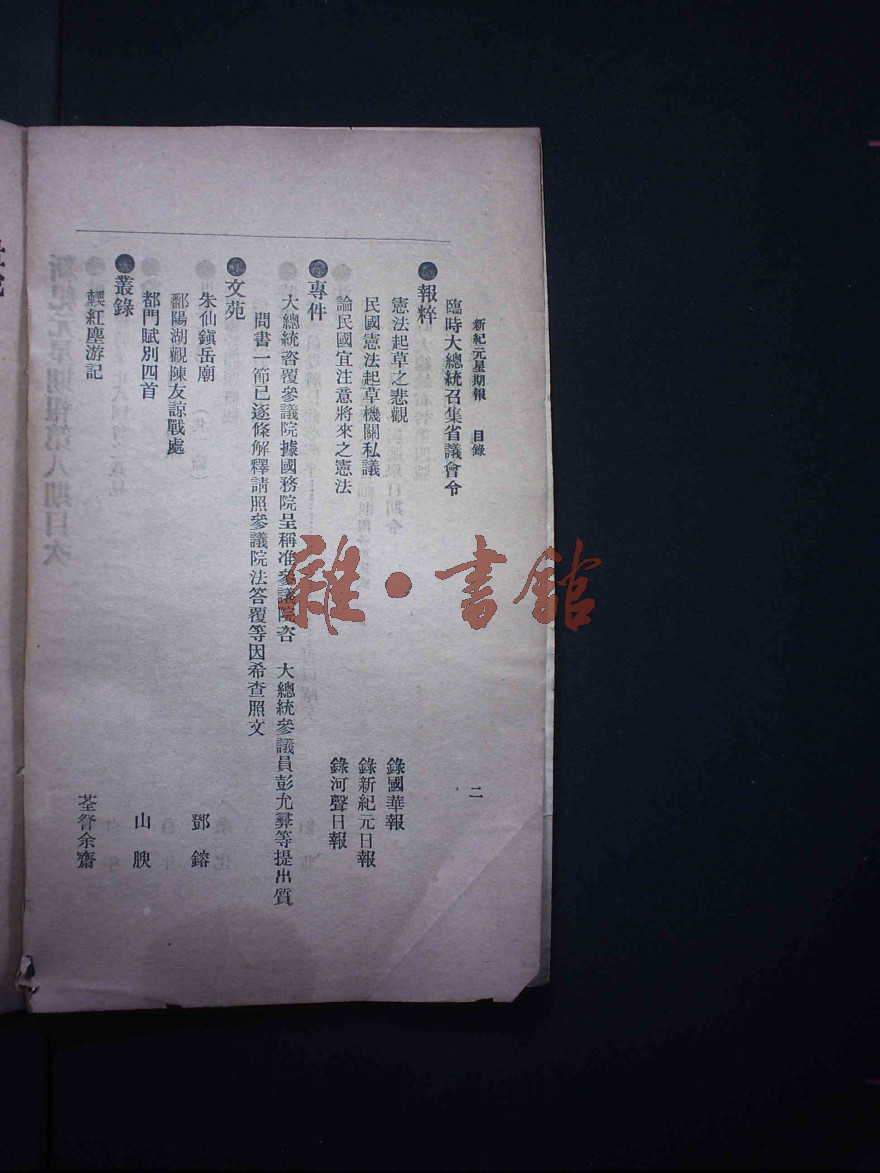 新紀元星期報 目錄 二
臨時大總統召集省議會令
●報粹
憲法起草之悲觀 錄國華報
民國憲法起草機關私議 錄新紀元日報
論民國宜注意將來之憲法 錄河聲日報
●專件
大總統咨覆參議院據國務院呈稱准參議院咨 大總統參議員彭允彝等提出質
問書一節已逐條解釋請照參議院法答覆等因希查照文
●文苑
朱仙鎭岳廟
鄱陽湖觀陳友諒戰處 鄧鎔
都門賦別四首 山腴
●叢錄
輭紅塵游記 荃詧余齋
雜·書館